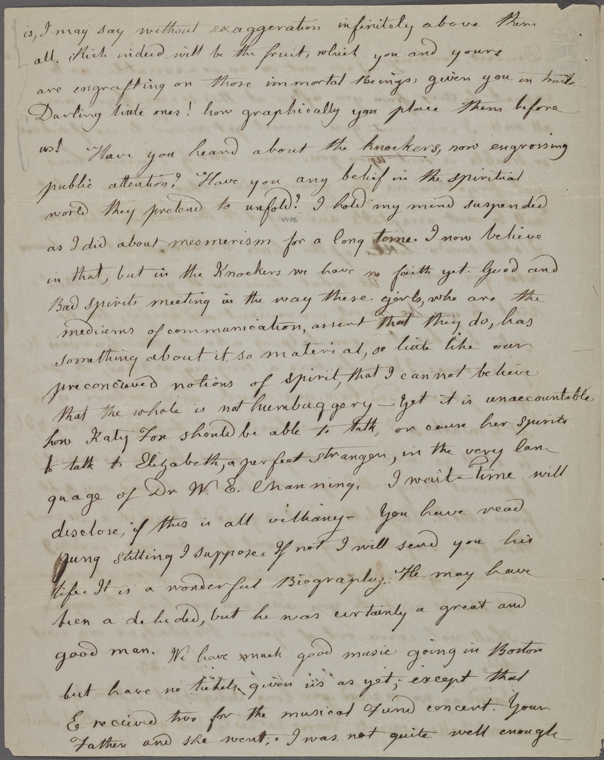 is, I may say without exaggeration infinitely above them
all. Rich indeed will be the fruit, which you and yours
are engrafting on those immortal Beings, given you in trust
Darling little ones! how graphically you place them before
us! Have you heard about the knockers, now engrossing
public attention? Have you any belief in the spiritual
world they pretend to unfold? I hold my mind suspended
as I did about mesmerism for a long time. I now believe
in that, but in the Knockers we have no faith yet. Good and
Bad spirits meeting in the way these girls, who are the
mediums of communication, assert that they do, has
something about it so material, so little like our
preconcieved notions of spirit, that I cannot believe
that the whole is not humbuggery - Yet it is unaccountable
how Katy Fox should be able to talk, or cause her spirits
to talk to Elizabeth, a perfect stranger, in the very lan-
guage of Dr W. E. Channing. I wait - Time will
disclose, if this is all
You have read
Jung Stilling I suppose. If not I will send you his
life. It is a wonderful Biography. He may have
been a deluded, but he was certainly a great and
good man. We have much good music going in Boston
but have no tickets given us as yet; except that
E recieved two for the musical Fund concert. Your
Father and she went. I was not quite well enough